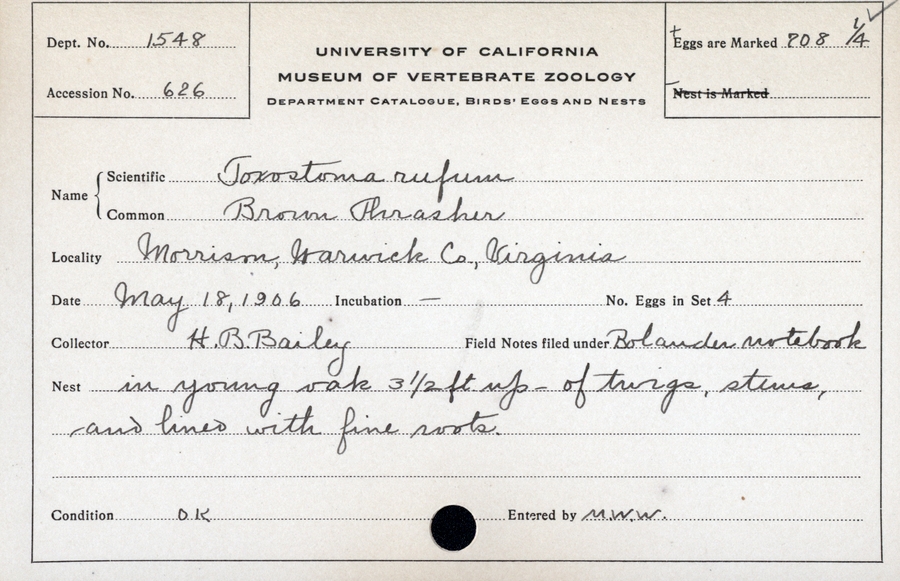 Dept. No. 1548
Accession No. 626
UNIVERSITY OF CALIFORNIA
MUSEUM OF VERTEBRATE ZOOLOGY
DEPARTMENT CATALOGUE, BIRDS' EGGS AND NESTS
Eggs are Marked 708 1/4
Nest is Marked
Name
Scientific Toxostoma rufum
Common Brown Thrasher
Locality Morrison, Warwick Co., Virginia
Date May 18, 1906 Incubation — No. Eggs in Set 4
Collector H. B. Bailey Field Notes filed under Bolander notebook
Nest in young oak 3 1/2 ft up - of twigs, stems,
and lined with fine roots.
Condition OK Entered by M.W.W.